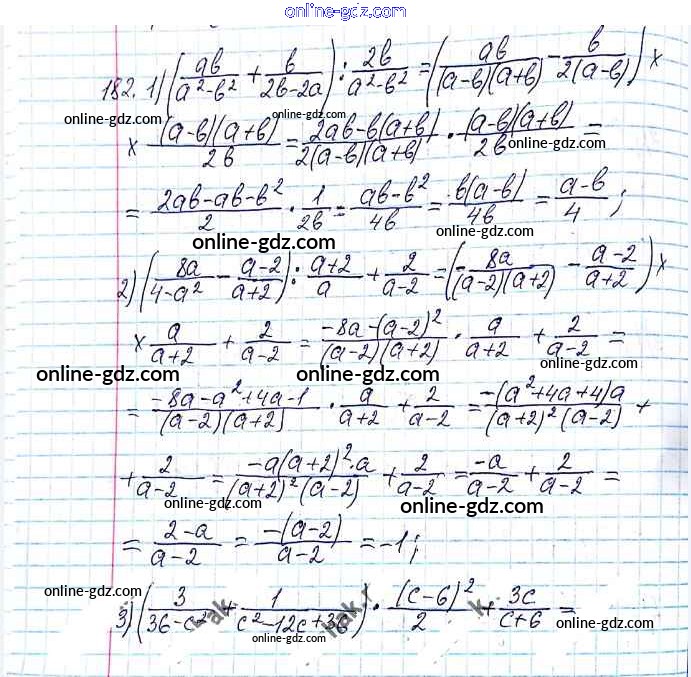 online-gdz.com
182. 1) (ab/(a²-b²) + b/(2b-2a)) : 2b/(a²-b²) = (ab/((a-b)(a+b)) - b/(2(a-b))) ×
online-gdz.com online-gdz.com
× ((a-b)(a+b))/2b = (2ab-b(a+b))/(2(a-b)(a+b)) · ((a-b)(a+b))/2b =
online-gdz.com
= (2ab-ab-b²)/2 · 1/2b = (ab-b²)/4b = (b(a-b))/4b = (a-b)/4 ;
online-gdz.com online-gdz.com
2) (8a/(4-a²) - (a-2)/(a+2)) : (a+2)/a + 2/(a-2) = (-8a/((a-2)(a+2)) - (a-2)/(a+2)) ×
× a/(a+2) + 2/(a-2) = (-8a-(a-2)²)/((a-2)(a+2)) · a/(a+2) + 2/(a-2) =
online-gdz.com online-gdz.com online-gdz.com
= (-8a-a²+4a-1)/((a-2)(a+2)) · a/(a+2) + 2/(a-2) = (-(a²+4a+4)a)/((a+2)²(a-2)) +
+ 2/(a-2) = (-a(a+2)²·a)/((a+2)²(a-2)) + 2/(a-2) = -a/(a-2) + 2/(a-2) =
online-gdz.com online-gdz.com
= (2-a)/(a-2) = (-(a-2))/(a-2) = -1;
online-gdz.com online-gdz.com
3) (3/(36-c²) + 1/(c²-12c+36)) · (c-6)²/2 + 3c/(c+6) =
online-gdz.com online-gdz.com